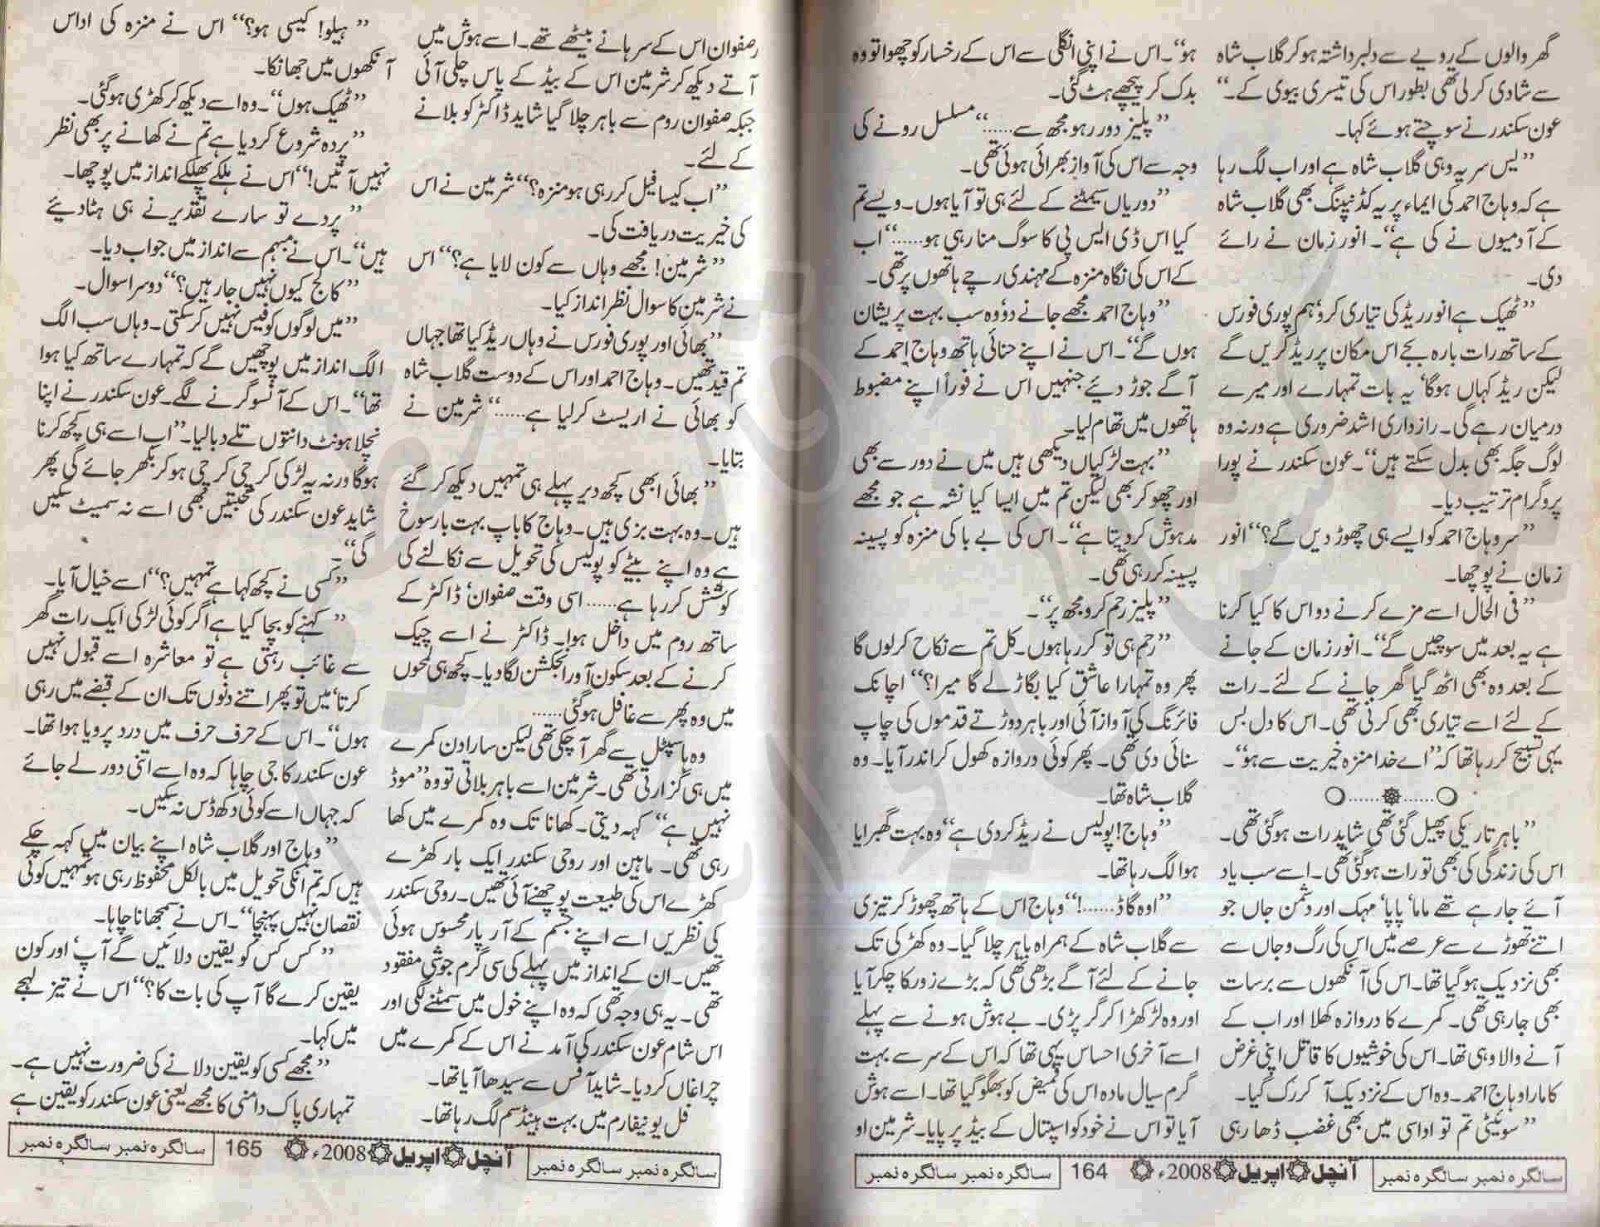 گھر والوں کے رویے سے دلبرداشتہ ہو کر گلاب شاہ
سے شادی کر لی تھی بطور اس کی تیسری بیوی کے۔‘‘
عون سکندر نے سوچتے ہوئے کہا۔
’’یس سر یہ وہی گلاب شاہ ہے اور اب لگ رہا
ہے کہ وہاج احمد کی ایماء پر یہ کڈنیپنگ بھی گلاب شاہ
کے آدمیوں نے کی ہے‘‘۔ انور زمان نے رائے
دی۔
’’ٹھیک ہے انور ریڈ کی تیاری کرو‘ ہم پوری فورس
کے ساتھ رات بارہ بجے اس مکان پر ریڈ کریں گے
لیکن ریڈ کہاں ہوگا‘ یہ بات تمہارے اور میرے
درمیان رہے گی۔ رازداری اشد ضروری ہے ورنہ وہ
لوگ جگہ بھی بدل سکتے ہیں‘‘۔ عون سکندر نے پورا
پروگرام ترتیب دیا۔
’’سر وہاج احمد کو ایسے ہی چھوڑ دیں گے؟‘‘ انور
زمان نے پوچھا۔
’’فی الحال اسے مزے کرنے دو اس کا کیا کرنا
ہے یہ بعد میں سوچیں گے‘‘۔ انور زمان کے جانے
کے بعد وہ بھی اٹھ گیا گھر جانے کے لئے۔ رات
کے لئے اسے تیاری بھی کرنی تھی۔ اس کا دل بس
یہی تسبیح کر رہا تھا کہ ’’اے خدا منزہ خیریت سے ہو‘‘۔
’’باہر تاریکی پھیل گئی تھی شاید رات ہوگئی تھی۔
اس کی زندگی کی بھی تو رات ہوگئی تھی۔ اسے سب یاد
آئے جا رہے تھے ماما‘ پاپا‘ مہک اور دشمن جاں جو
اتنے تھوڑے سے عرصے میں اس کی رگ و جاں سے
بھی نزدیک ہوگیا تھا۔ اس کی آنکھوں سے برسات
بھی جاری تھی۔ کمرے کا دروازہ کھلا اور اب کے
آنے والا وہی تھا۔ اس کی خوشیوں کا قاتل اپنی غرض
کا مارا وہاج احمد۔ وہ اس کے نزدیک آ کر رک گیا۔
’’سویٹی تم تو اداسی میں بھی غضب ڈھا رہی
ہو‘‘۔ اس نے اپنی انگلی سے اس کے رخسار کو چھوا تو وہ
بدک کر پیچھے ہٹ گئی۔
’’پلیز دور رہو مجھ سے......‘‘ مسلسل رونے کی
وجہ سے اس کی آواز بھرائی ہوئی تھی۔
’’دوریاں سمیٹنے کے لئے ہی تو آیا ہوں۔ ویسے تم
کیا اس ڈی ایس پی کا سوگ منا رہی ہو......‘‘ اب
کے اس کی نگاہ منزہ کے مہندی رچے ہاتھوں پر تھی۔
’’وہاج احمد مجھے جانے دو‘ وہ سب بہت پریشان
ہوں گے‘‘۔ اس نے اپنے حنائی ہاتھ وہاج احمد کے
آگے جوڑ دیئے جنہیں اس نے فوراً اپنے مضبوط
ہاتھوں میں تھام لیا۔
’’بہت لڑکیاں دیکھی ہیں میں نے دور سے بھی
اور چھو کر بھی لیکن تم میں ایسا کیا نشہ ہے جو مجھے
مدہوش کر دیتا ہے‘‘۔ اس کی بے باکی منزہ کو پسینہ
پسینہ کر رہی تھی۔
’’پلیز رحم کرو مجھ پر‘‘۔
’’رحم ہی تو کر رہا ہوں۔ کل تم سے نکاح کر لوں گا
پھر وہ تمہارا عاشق کیا بگاڑ لے گا میرا؟‘‘ اچانک
فائرنگ کی آواز آئی اور باہر دوڑتے قدموں کی چاپ
سنائی دی تھی۔ پھر کوئی دروازہ کھول کر اندر آیا۔ وہ
گلاب شاہ تھا۔
’’وہاج! پولیس نے ریڈ کر دی ہے‘‘ وہ بہت گھبرایا
ہوا لگ رہا تھا۔
’’اوہ گاڈ......!‘‘ وہاج اس کے ہاتھ چھوڑ کر تیزی
سے گلاب شاہ کے ہمراہ باہر چلا گیا۔ وہ کھڑکی تک
جانے کے لئے آگے بڑھی تھی کہ بڑے زور کا چکر آیا
اور وہ لڑکھڑا کر گر پڑی۔ بے ہوش ہونے سے پہلے
اسے آخری احساس یہی تھا کہ اس کے سر سے بہت
گرم سیال مادہ اس کی قمیض کو بھگو گیا تھا۔ اسے ہوش
آیا تو اس نے خود کو اسپتال کے بیڈ پر پایا۔ شرمین او
سالگرہ نمبر سالگرہ نمبر آنچل اپریل 2008ء 164 سالگرہ نمبر سالگرہ نمبر
رصفوان اس کے سرہانے بیٹھے تھے۔ اسے ہوش میں
آتے دیکھ کر شرمین اس کے بیڈ کے پاس چلی آئی
جبکہ صفوان روم سے باہر چلا گیا شاید ڈاکٹر کو بلانے
کے لئے۔
’’اب کیسا فیل کر رہی ہو منزہ؟‘‘ شرمین نے اس
کی خیریت دریافت کی۔
’’شرمین! مجھے وہاں سے کون لایا ہے؟‘‘ اس
نے شرمین کا سوال نظر انداز کیا۔
’’بھائی اور پوری فورس نے وہاں ریڈ کیا تھا جہاں
تم قید تھیں۔ وہاج احمد اور اس کے دوست گلاب شاہ
کو بھائی نے اریسٹ کر لیا ہے......‘‘ شرمین نے
بتایا۔
’’بھائی ابھی کچھ دیر پہلے ہی تمہیں دیکھ کر گئے
ہیں۔ وہ بہت بزی ہیں۔ وہاج کا باپ بہت بارسوخ
ہے وہ اپنے بیٹے کو پولیس کی تحویل سے نکالنے کی
کوشش کر رہا ہے...... اسی وقت صفوان‘ ڈاکٹر کے
ساتھ روم میں داخل ہوا۔ ڈاکٹر نے اسے چیک
کرنے کے بعد سکون آور انجکشن لگا دیا۔ کچھ ہی لمحوں
میں وہ پھر سے غافل ہوگئی......
وہ ہاسپٹل سے گھر آچکی تھی لیکن سارا دن کمرے
میں ہی گزارتی تھی۔ شرمین اسے باہر بلاتی تو وہ ’’موڈ
نہیں ہے‘‘ کہہ دیتی۔ کھانا تک وہ کمرے میں کھا
رہی تھی۔ ماہین اور روحی سکندر ایک بار کھڑے
کھڑے اس کی طبیعت پوچھنے آئی تھیں۔ روحی سکندر
کی نظریں اسے اپنے جسم کے آر پار محسوس ہوئی
تھیں۔ ان کے انداز میں پہلے کی سی گرم جوشی مفقود
تھی۔ یہ ہی وجہ تھی کہ وہ اپنے خول میں سمٹنے لگی اور
اس شام عون سکندر کی آمد نے اس کے کمرے میں
چراغاں کر دیا۔ شاید آفس سے سیدھا آیا تھا۔
فل یونیفارم میں بہت ہینڈسم لگ رہا تھا۔
’’ہیلو! کیسی ہو؟‘‘ اس نے منزہ کی اداس
آنکھوں میں جھانکا۔
’’ٹھیک ہوں‘‘۔ وہ اسے دیکھ کر کھڑی ہوگئی۔
’’پردہ شروع کر دیا ہے تم نے کھانے پر بھی نظر
نہیں آتیں!‘‘ اس نے ہلکے پھلکے انداز میں پوچھا۔
’’پردے تو سارے تقدیر نے ہی ہٹا دیئے
ہیں‘‘۔ اس نے مبہم سے انداز میں جواب دیا۔
’’کالج کیوں نہیں جا رہیں؟‘‘ دوسرا سوال۔
’’میں لوگوں کو فیس نہیں کر سکتی۔ وہاں سب الگ
الگ انداز میں پوچھیں گے کہ تمہارے ساتھ کیا ہوا
تھا‘‘۔ اس کے آنسو گرنے لگے۔ عون سکندر نے اپنا
نچلا ہونٹ دانتوں تلے دبا لیا۔ ’’اب اسے ہی کچھ کرنا
ہوگا ورنہ یہ لڑکی کرچی کرچی ہو کر بکھر جائے گی پھر
شاید عون سکندر کی محبتیں بھی اسے نہ سمیٹ سکیں
گی‘‘۔
’’کسی نے کچھ کہا ہے تمہیں؟‘‘ اسے خیال آیا۔
’’کہنے کو بچا کیا ہے اگر کوئی لڑکی ایک رات گھر
سے غائب رہتی ہے تو معاشرہ اسے قبول نہیں
کرتا‘ میں تو پھر اتنے دنوں تک ان کے قبضے میں رہی
ہوں‘‘۔ اس کے حرف حرف میں درد پرویا ہوا تھا۔
عون سکندر کا جی چاہا کہ وہ اسے اتنی دور لے جائے
کہ جہاں اسے کوئی دکھ ڈس نہ سکیں۔
’’وہاج اور گلاب شاہ اپنے بیان میں کہہ چکے
ہیں کہ تم انکی تحویل میں بالکل محفوظ رہی ہو تمہیں کوئی
نقصان نہیں پہنچا‘‘۔ اس نے سمجھانا چاہا۔
’’کس کس کو یقین دلائیں گے آپ‘ اور کون
یقین کرے گا آپ کی بات کا؟‘‘ اس نے تیز لہجے
میں کہا۔
’’مجھے کسی کو یقین دلانے کی ضرورت نہیں ہے۔
تمہاری پاک دامنی کا مجھے یعنی عون سکندر کو یقین ہے
سالگرہ نمبر سالگرہ نمبر آنچل اپریل 2008ء 165 سالگرہ نمبر سالگرہ نمبر